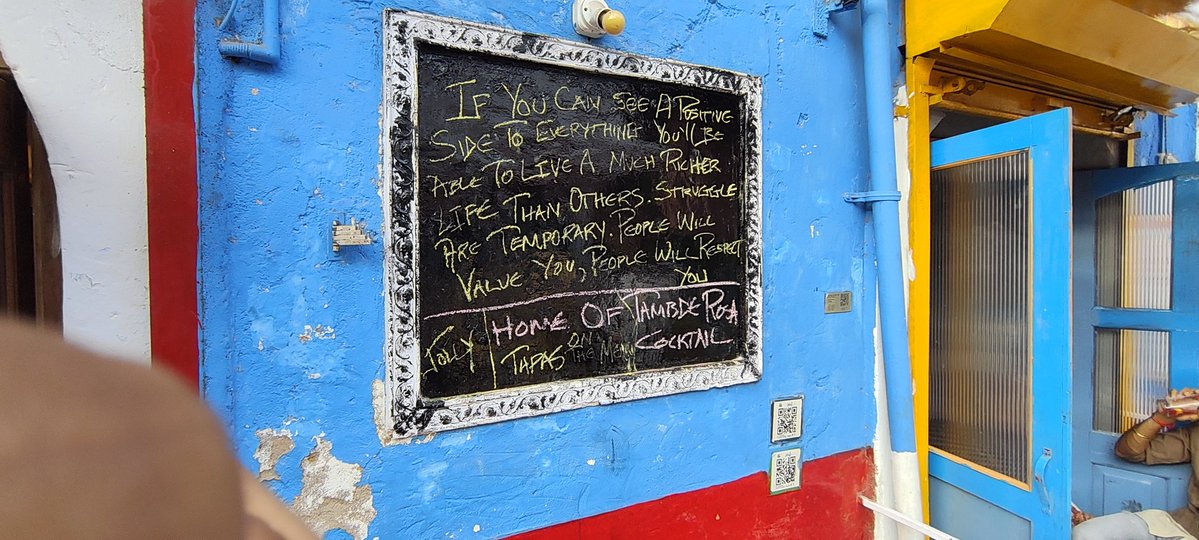 If You Can See A Positive
Side To Everything You'll Be
Able To Live A Much Richer
Life Than Others. Struggle
Are Temporary. People Will
Value You, People Will Respect
You
Jolly
Tapas
Home Of
On
The Menu
Tambde Roza
Cocktail